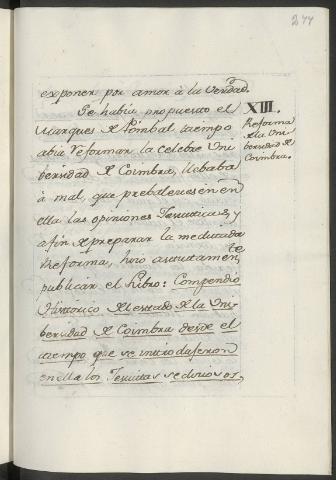 244
exponer por amor à la Verdad.
Se habia propuesto el
Marques de Pombal tiempo
abia reformar la celebre Uni
bersidad de Coimbra, llebaba
à mal, que prebaleciesen en
ella las opiniones Jesuiticas, y
a fin de preparar la meditada
Reforma, hizo astutamen te
publicar el libro: Compendio
Historico del estado de la Uni-
bersidad de Coimbra desde el
tiempo que se introdugeron
en ella los Jesuitas
XIII.
Reforma
de la Uni
bersidad de
Coimbra.